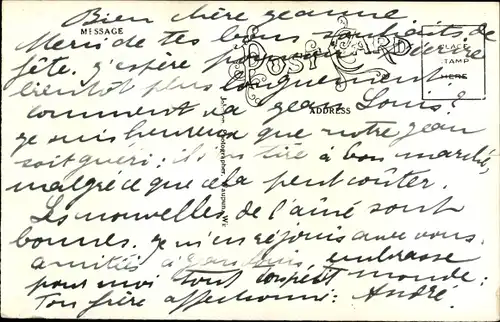 Bien chère Jeanne
MESSAGE
POST CARD
PLACE
STAMP
HERE
Merci de tes bons souhaits de
fête. J'espère pouvoir t'écrire
bientôt plus longuement.
Comment va Jean-Louis?
ADDRESS
Je suis heureux que notre Jean
soit guéri: il s'en tire à bon marché,
malgré ce que cela peut coûter.
Les nouvelles de l'aîné sont
bonnes. Je m'en réjouis avec vous.
Amitiés à embrasse
pour moi tout ton petit monde:
Ton frère affectionné: André.